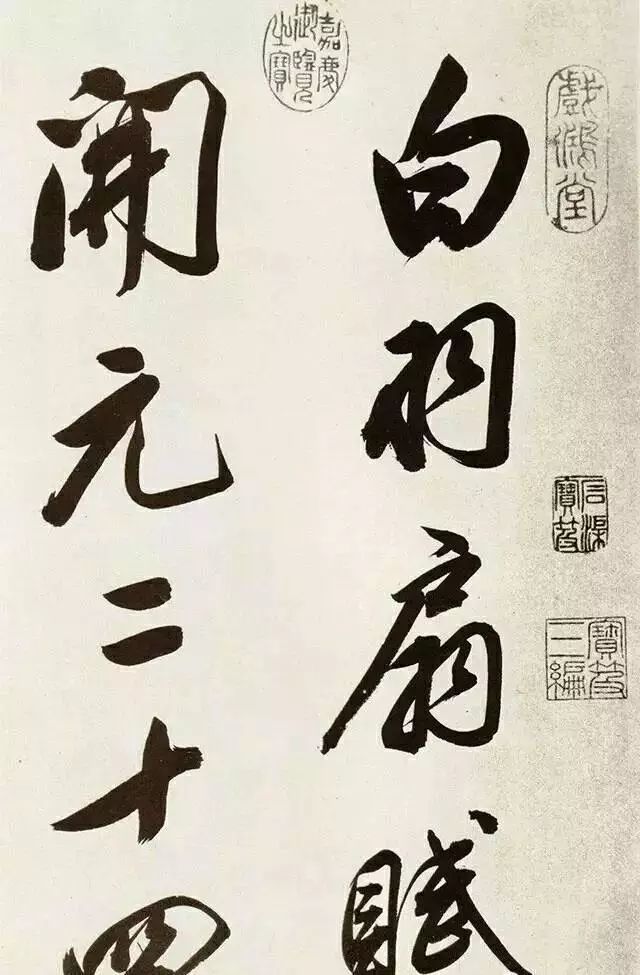 戲鴻堂
石渠寶笈
寶笈三編
白羽扇賦
嘉慶御覽之寶
開元二十四